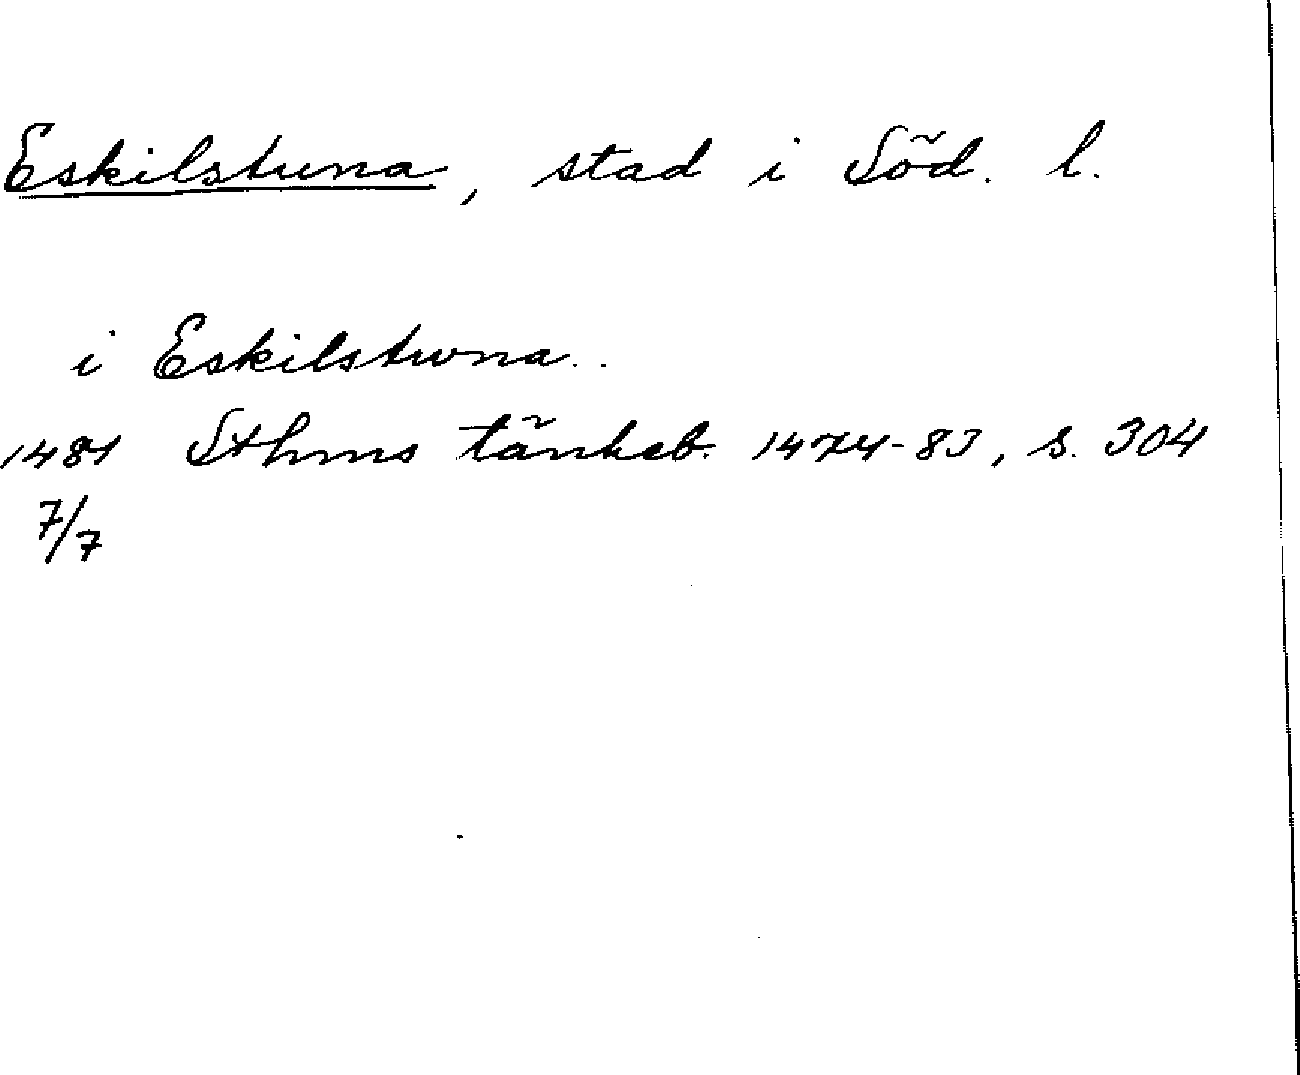 Eskilstuna, stad i Söd. l.
i Eskilstuna..
1481 Sthms tänkeb. 1474-83, s. 304
7/7